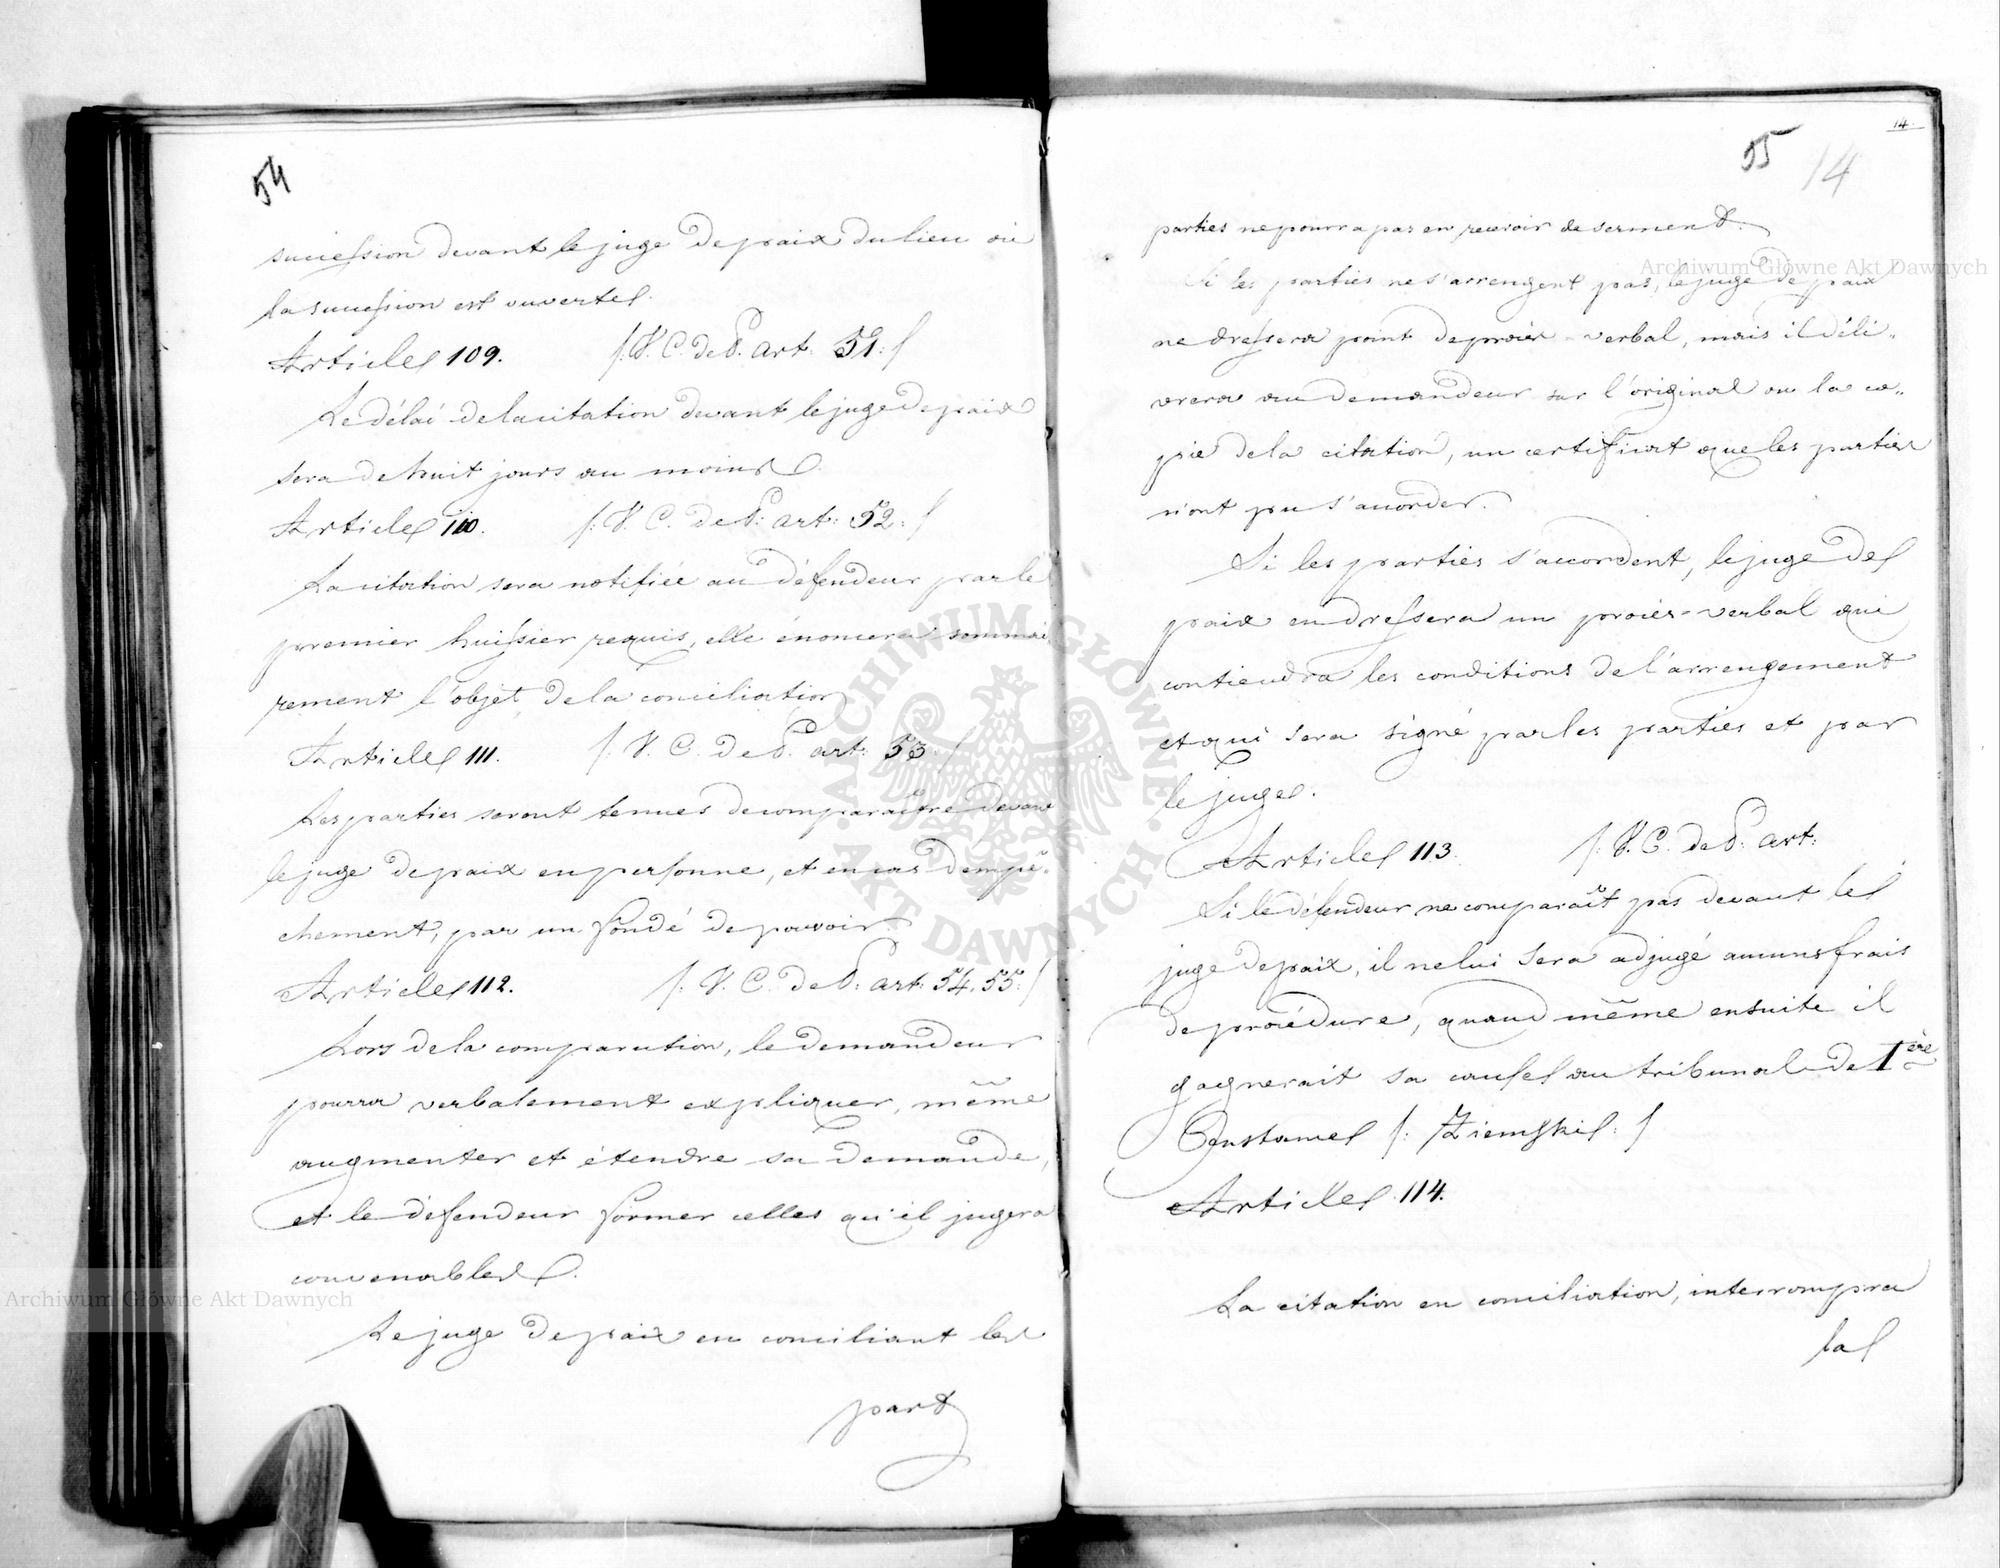 54
succession devant le juge de paix du lieu où
la succession est ouverte.
Article 109. /:V. C. de P. art: 51:/
Le délai de la citation devant le juge de paix
sera de huit jours au moins.
Article 110. /:V. C. de P: art: 52:/
La citation sera notifiée au défendeur par le
premier huissier requis, elle énoncera sommai
rement l'objet de la conciliation
Article 111. /:V. C. de P. art: 53:/
Les parties seront tenues de comparaître devant
le juge de paix en personne, et en cas d'empê-
chement, par un fondé de pouvoir.
Article 112. /:V. C. de P: art: 54, 55:/
Lors de la comparution, le demandeur
pourra verbalement expliquer, même
augmenter et étendre sa demande,
et le défendeur former celles qu'il jugera
convenables.
Le juge de paix en conciliant les
part
14.
55 14
parties ne pourra pas en recevoir de serment.
Si les parties ne s'arrengent pas, le juge de paix
ne dressera point de procès-verbal, mais il déli„
vrera au demandeur sur l'original ou la co„
pie de la citation, un certificat que les parties
n'ont pu s'accorder.
Si les parties s'accordent, le juge de
paix en dressera un procès-verbal qui
contiendra les conditions de l'arrengement
et qui sera signé par les parties et par
le juge.
Article 113. /:V. C. de P: art:
Si le défendeur ne comparaît pas devant le
juge de paix, il ne lui sera adjugé aucuns frais
de procédure, quand même ensuite il
gagnerait sa cause au tribunal de 1ère
Instance /: Ziemskie :/
Article 114.
La citation en conciliation, interrompra
la
Archiwum Główne Akt Dawnych
Archiwum Główne Akt Dawnych
ARCHIWUM GŁÓWNE · AKT DAWNYCH ·